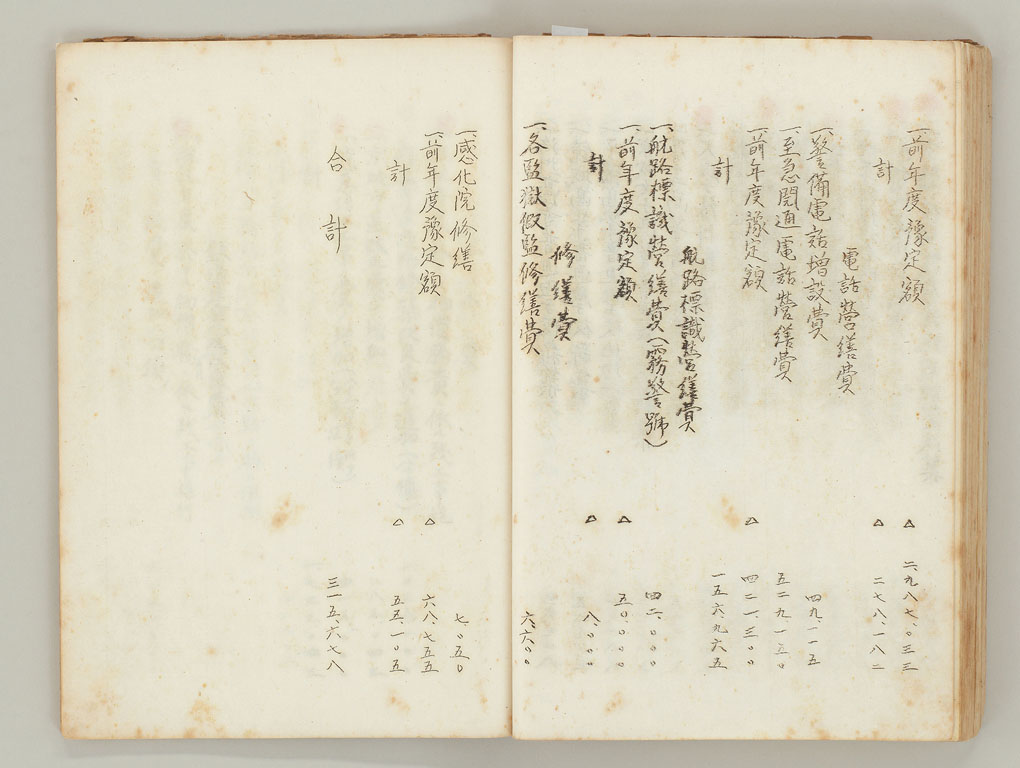 一、前年度豫定額 △ 二、九八七、〇三三
計 △ 二七八、一八二
電話營繕費
一、警備電話増設費 四九、一一五
一、至急開通電話營繕費 五二九、一五〇
一、前年度豫定額 △ 四二一、三〇〇
計 一五六、九六五
航路標識營繕費
一、航路標識營繕費(霧警號) 四二、〇〇〇
一、前年度豫定額 △ 五〇、〇〇〇
計 △ 八、〇〇〇
修繕費
一、各監獄假監修繕費 六、六〇〇
一、感化院修繕 七、〇五〇
一、前年度豫定額 △ 六八、七五五
計 △ 五五、一〇五
合計 三一五、六七八